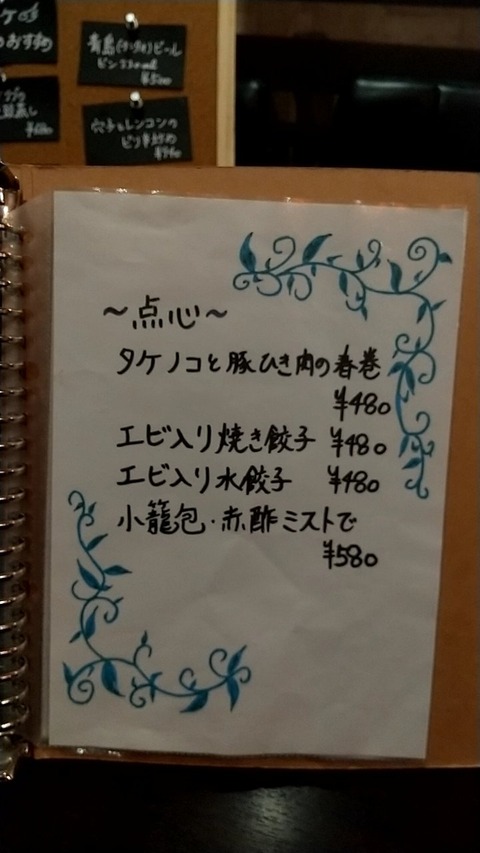 のおすすめ
青島(チンタオ)ビール
ビン
¥500
穴子とレンコンの
ピリ辛炒め
~点心~
タケノコと豚ひき肉の春巻
¥480
エビ入り焼き餃子 ¥480
エビ入り水餃子 ¥480
小籠包・赤酢ミストで
¥580